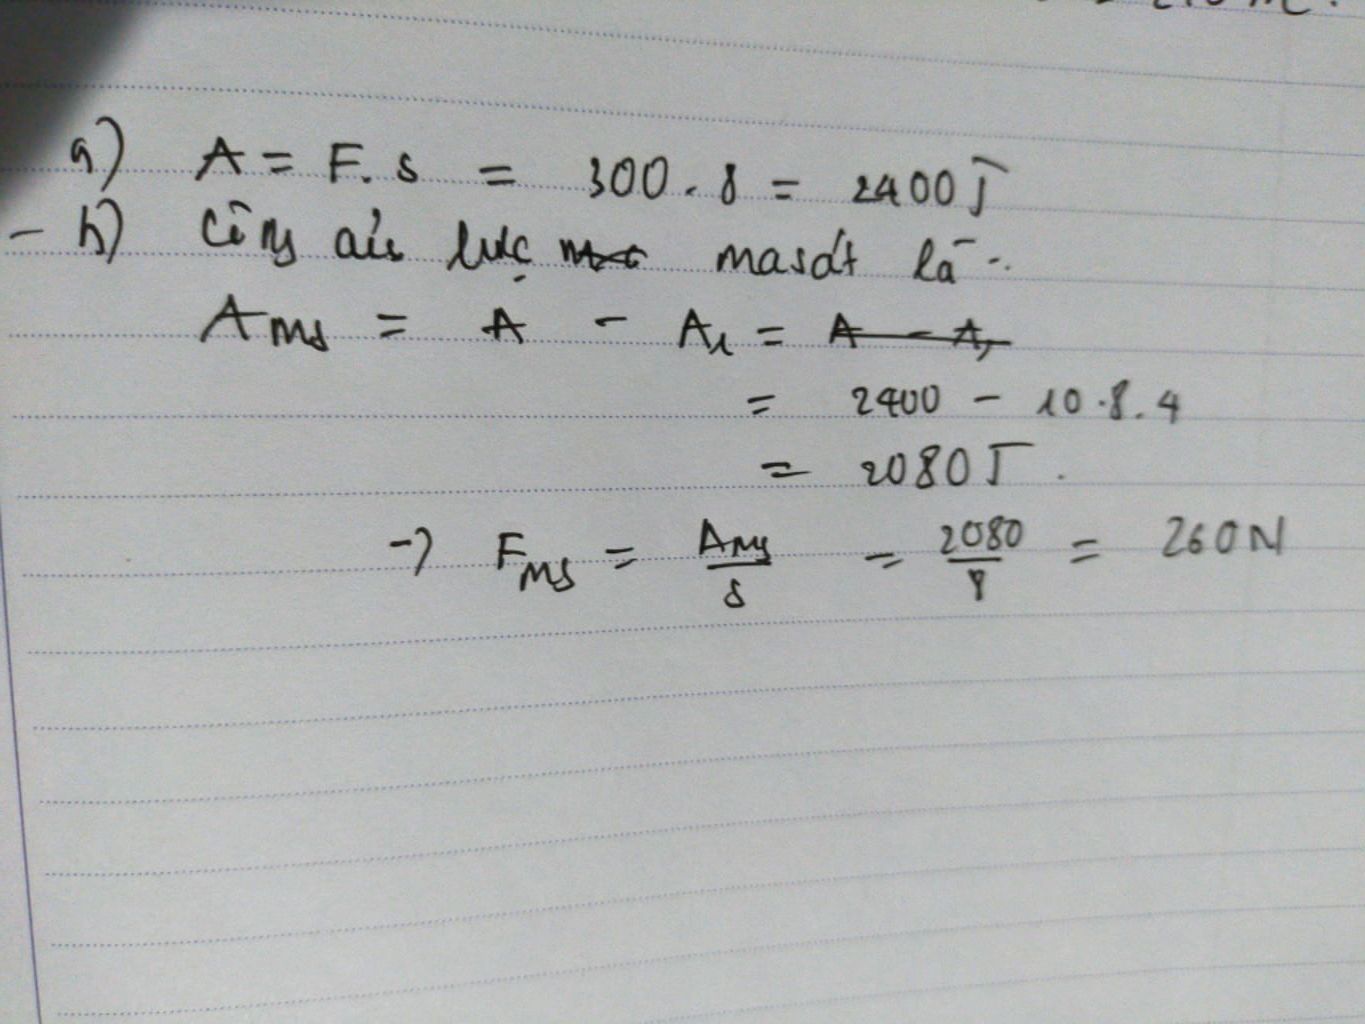 a) A = F. s = 300 . 8 = 2400 J
- b) Công của lực masát là :
Ams = A - A1 =
= 2400 - 10.8.4
= 2080 J.
-> Fms = Ams/s = 2080/8 = 260N